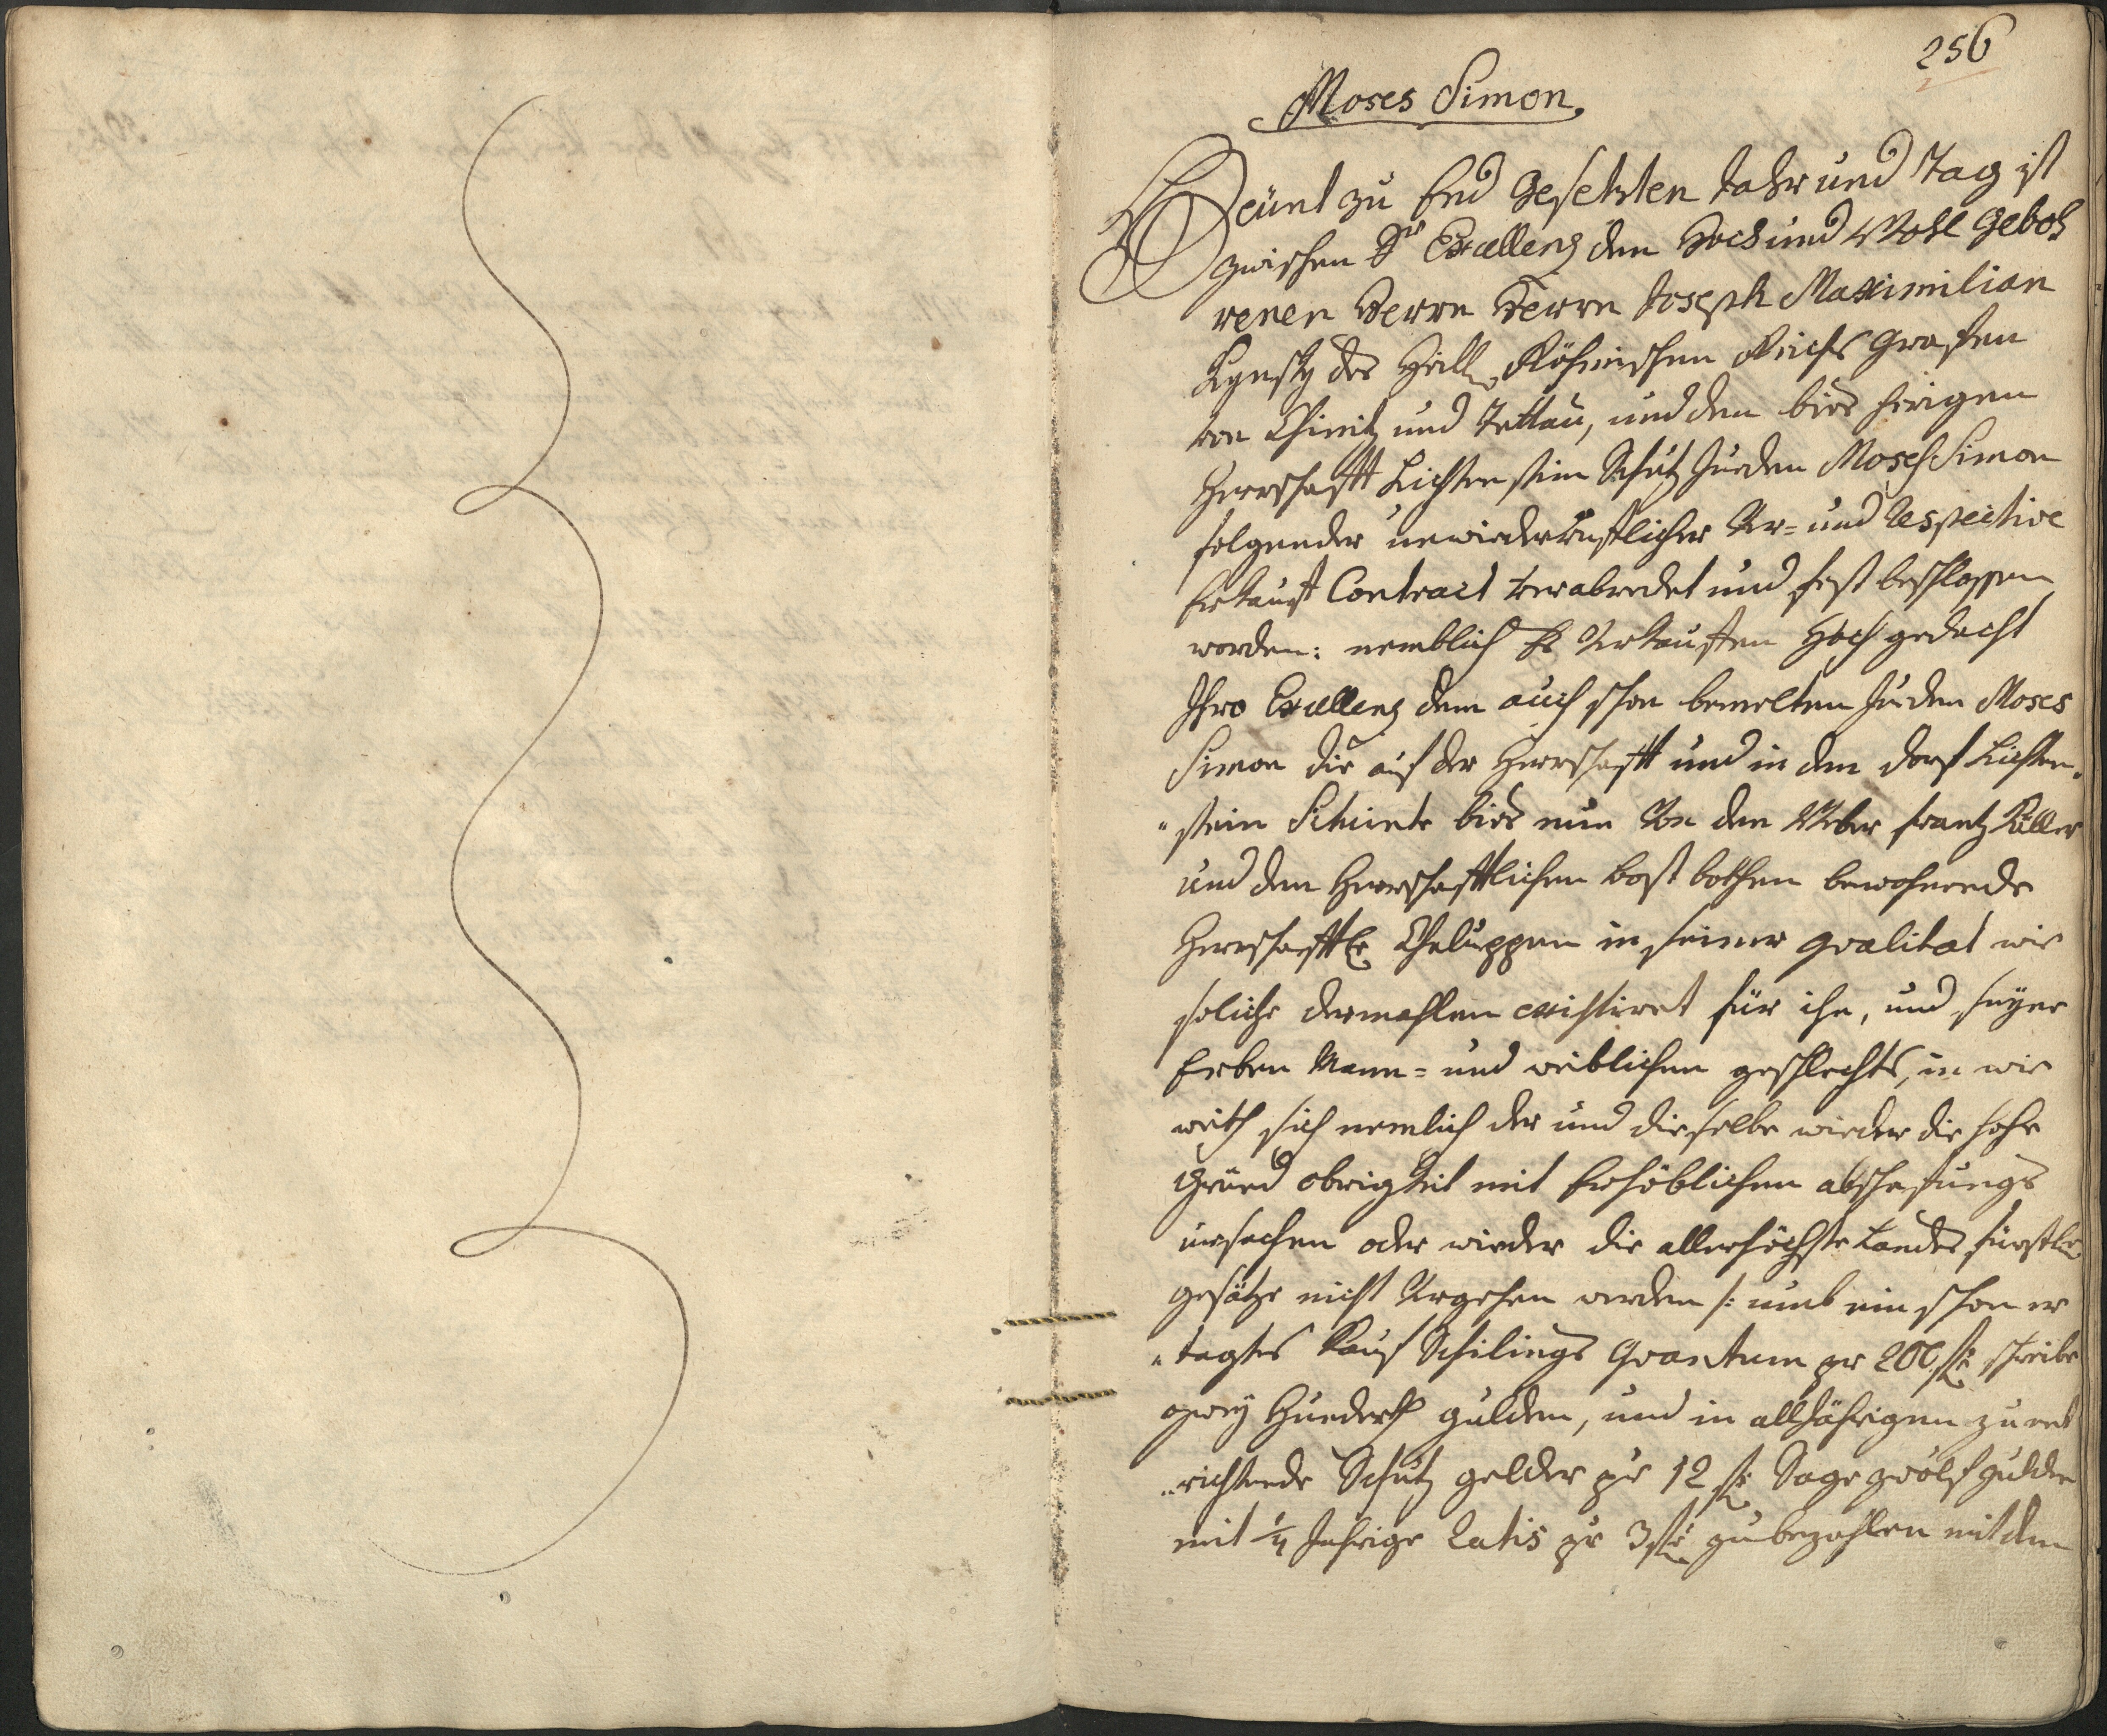 256
Moses Simon.
Heünt zu End Gesetzten Jahr und Tag ist
zwischen Sr Excellenz den Hoch und Wohl Geboh
renen Herrn Herrn Joseph Maximilian
Kynsky des Heill. Röhmischen Reichs Grafen
von Chinitz und Tettau, und den bies hirigen
Herrschafft Lichtenstein Schutz Juden Mosch Simon
folgender unwiederrufflicher Ver- und respective
Erkauff Contract verabredet und fest beschlossen
worden: nemblich Es Verkauffen Hoch gedacht
Ihro Excellenz dem auch schon bemelten Juden Moses
Simon die auf der Herrschafft und in den Dorf Lichten„
„stein Situirte bies nun Von den Weber Frantz Küller
und den Herrschafftlichen Post bothen bewohnende
Herrschafftl. Chaluppen in seiner qvalitat wie
soliche dermahlen existiret für ihn, und seyne
Erben Mann- und weiblichen geschlechts, in wie
weith sich nemlich der und dieselbe wieder die hohe
Grund obrigkeit mit Erhöblichen abschafungs
ursachen oder wieder die allerhöchste Landes fürstl.
gesätze nicht Vergehen werden /: umb ein schon er
„legtes Kauf Schilings Qvantum pr 200 f schreibe
zwey Hunderth gulden, und in alljährigen zu ent
„richtende Schutz gelder pr 12 f Sage zwölf gulden
mit ¼ Jahrige Ratis pr 3 f zu bezahlen mit den